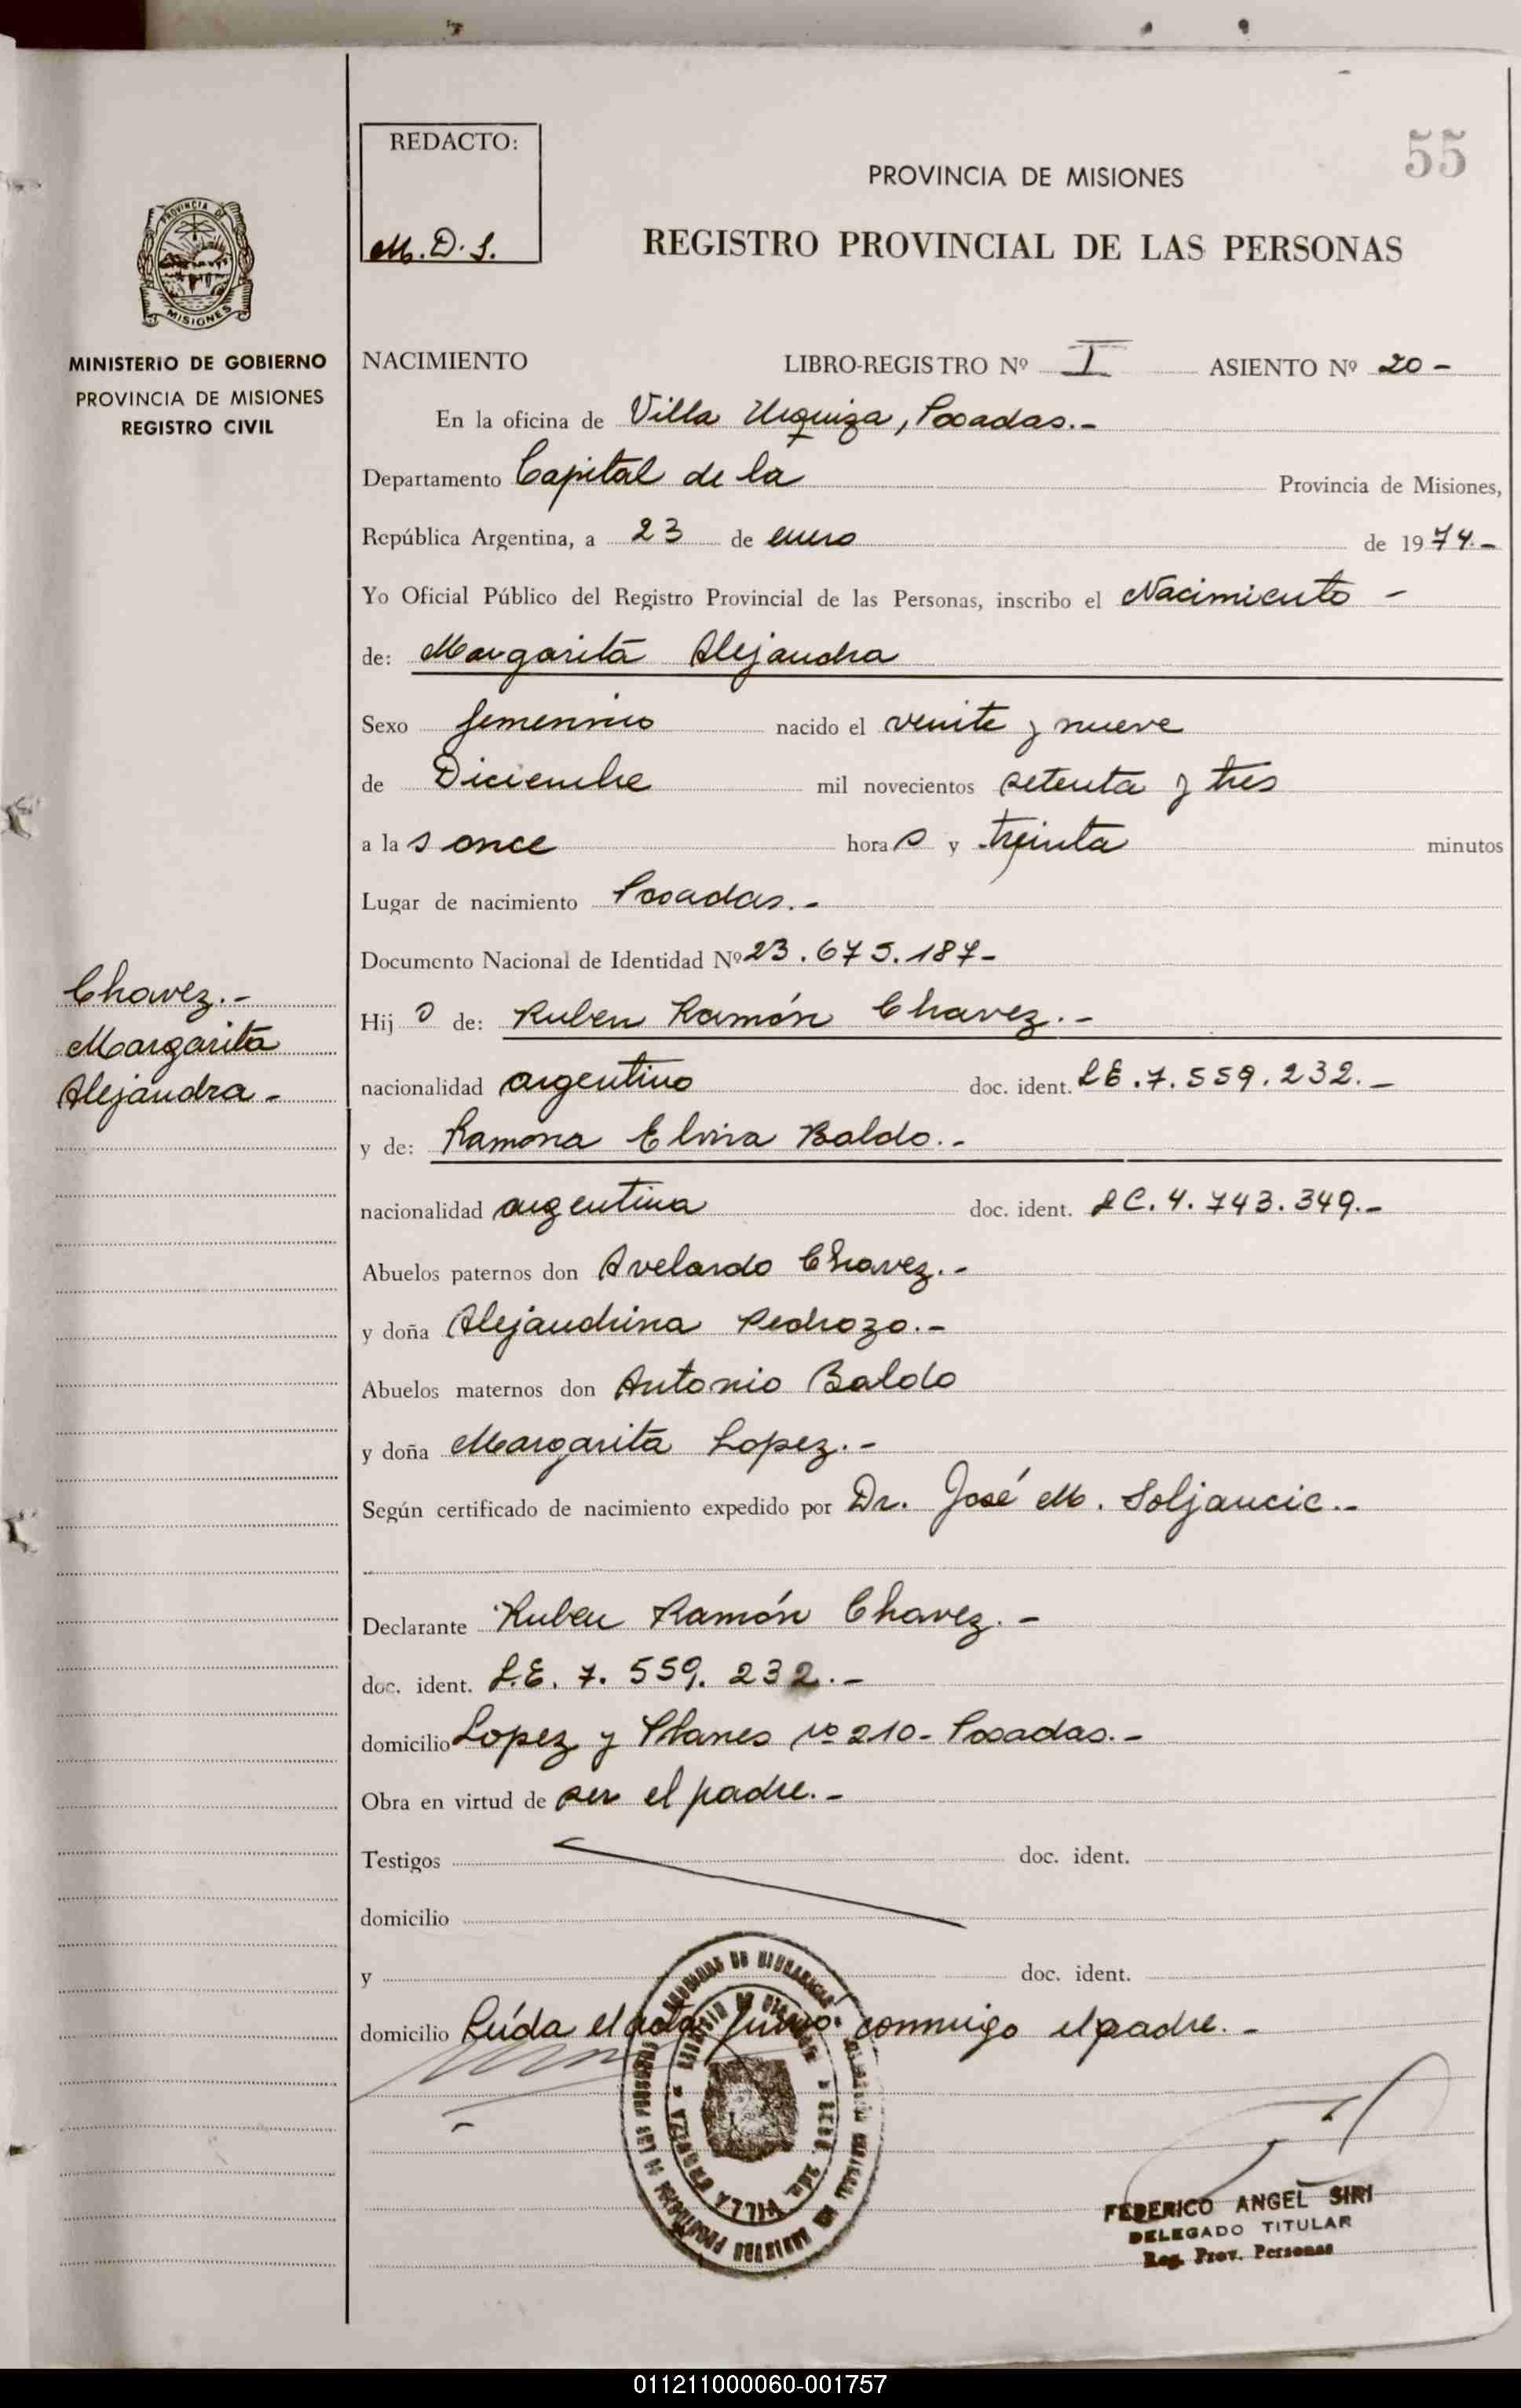 55
REDACTO:
M. D. S.
PROVINCIA DE MISIONES
REGISTRO PROVINCIAL DE LAS PERSONAS
PROVINCIA DE
MISIONES
MINISTERIO DE GOBIERNO
PROVINCIA DE MISIONES
REGISTRO CIVIL
NACIMIENTO LIBRO-REGISTRO Nº I ASIENTO Nº 20 -
En la oficina de Villa Urquiza, Posadas.-
Departamento Capital de la Provincia de Misiones,
República Argentina, a 23 de enero de 1974.-
Yo Oficial Público del Registro Provincial de las Personas, inscribo el Nacimiento -
de: Margarita Alejandra
Sexo femenino nacido el veinte y nueve
de Diciembre mil novecientos setenta y tres
a las once horas y treinta minutos
Lugar de nacimiento Posadas.-
Documento Nacional de Identidad Nº 23.675.187-
Chavez.-
Margarita
Alejandra -
Hijo de: Ruben Ramón Chavez.-
nacionalidad argentino doc. ident. LE.7.559.232.-
y de: Ramona Elvira Baldo.-
nacionalidad argentina doc. ident. LC.4.743.349.-
Abuelos paternos don Avelardo Chavez.-
y doña Alejandrina Pedrozo.-
Abuelos maternos don Antonio Baldo
y doña Margarita Lopez.-
Según certificado de nacimiento expedido por Dr. José M. Soljancic.-
Declarante Ruben Ramón Chavez.-
doc. ident. L.E. 7. 559. 232.-
domicilio Lopez y Planes nº 210- Posadas.-
Obra en virtud de ser el padre.-
Testigos doc. ident.
domicilio
y doc. ident.
domicilio Leída el acta, firmó conmigo el padre.-
VILLA URQUIZA
FEDERICO ANGEL SIRI
DELEGADO TITULAR
Reg. Prov. Personas
011211000060-001757